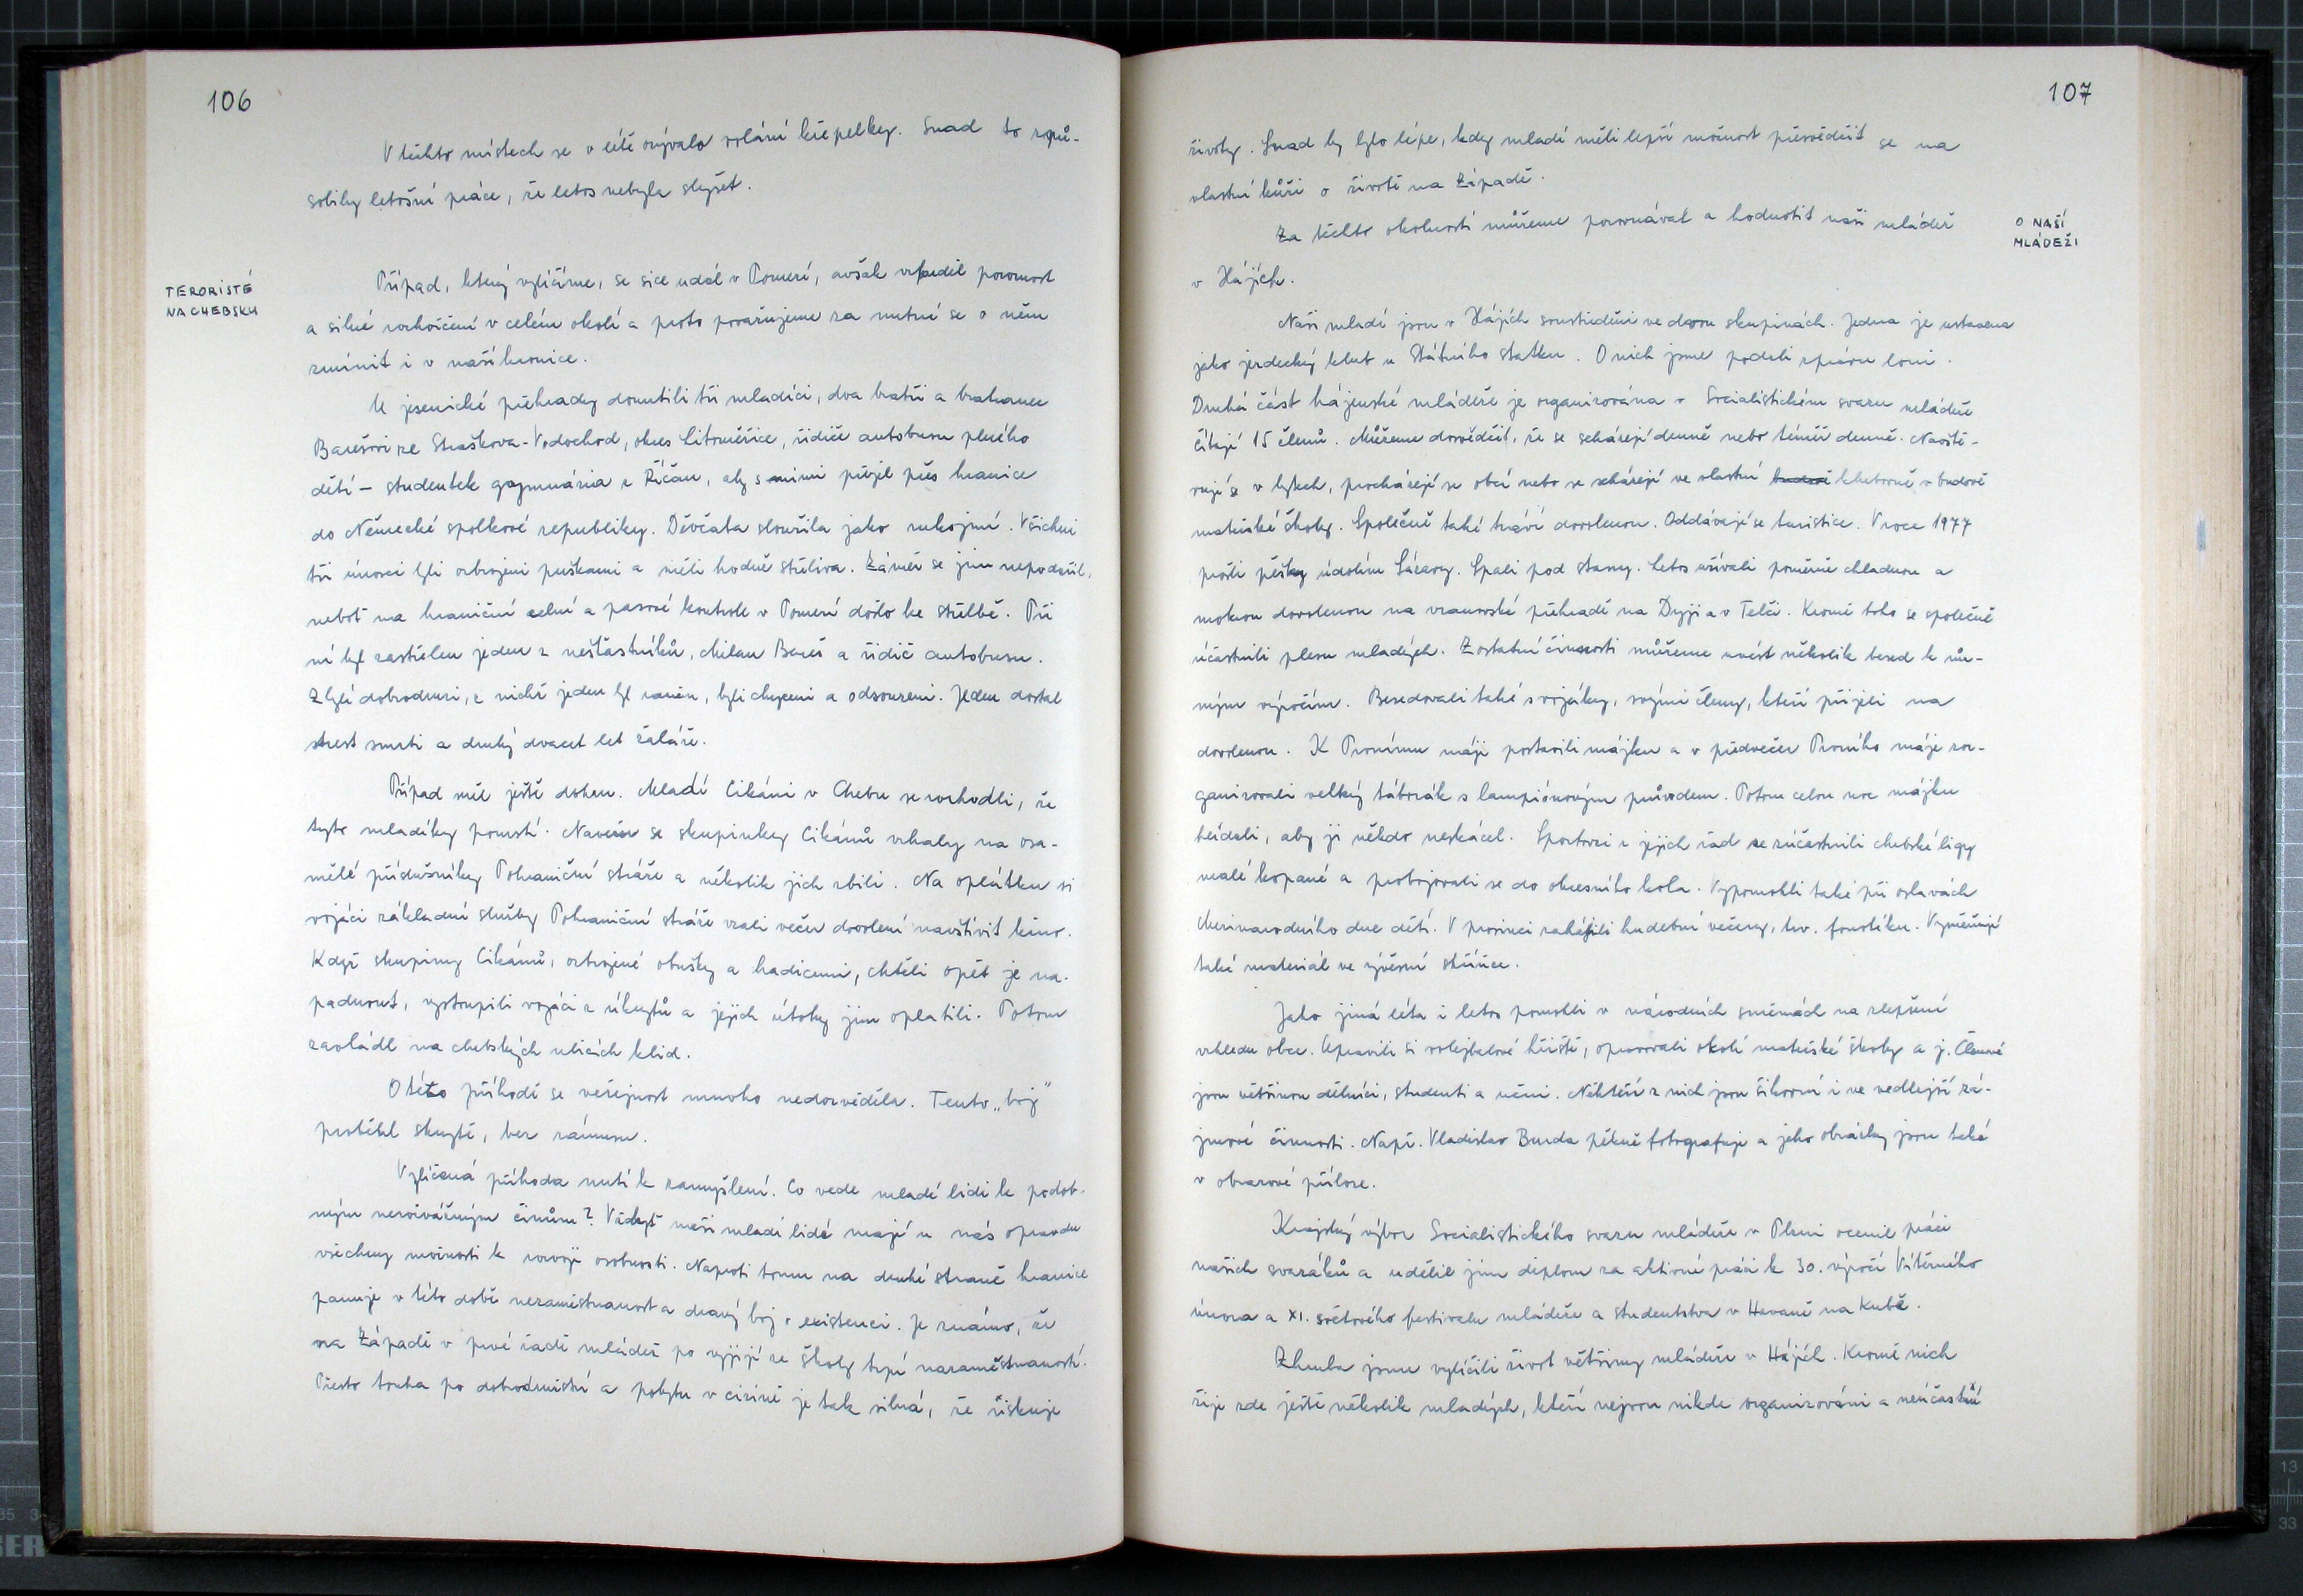 106
V těchto místech se v létě ozývalo volání křepelky. Snad to způ-
sobily letošní práce, že letos nebyla slyšet.
TERORISTÉ
NA CHEBSKU
Případ, který vylíčíme, se sice udál v Pomezí, avšak vzbudil pozornost
a silné rozhořčení v celém okolí a proto považujeme za nutné se o něm
zmínit i v naší kronice.
U jesenické přehrady donutili tři mladíci, dva bratři a bratranec
Barešovi ze Straškova-Vodochod, okres Litoměřice, řidiče autobusu plného
dětí – studentek gymnázia z Říčan, aby s nimi přejel přes hranice
do Německé spolkové republiky. Děvčata sloužila jako rukojmí. Všichni
tři únosci byli ozbrojeni puškami a měli hodně střeliva. Záměr se jim nepodařil,
neboť na hraniční celní a pasové kontrole v Pomezí došlo ke střelbě. Při
ní byl zastřelen jeden z nešťastníků, Milan Bareš a řidič autobusu.
Zbylí dobrodruzi, z nichž jeden byl raněn, byli chyceni a odsouzeni. Jeden dostal
trest smrti a druhý dvacet let žaláře.
Případ měl ještě dohru. Mladí Cikáni v Chebu se rozhodli, že
tyto mladíky pomstí. Navečer se skupinky Cikánů vrhaly na osa-
mělé příslušníky Pohraniční stráže a několik jich zbili. Na oplátku si
vojáci základní služby Pohraniční stráže vzali večer dovolení navštívit kino.
Když skupiny Cikánů, ozbrojené obušky a hadicemi, chtěli opět je na-
padnout, vystoupili vojáci z úkrytů a jejich útoky jim oplatili. Potom
zavládl na chebských ulicích klid.
O této příhodě se veřejnost mnoho nedozvěděla. Tento „boj"
proběhl skrytě, bez rámusu.
Vylíčená příhoda nutí k zamyšlení. Co vede mladé lidi k podob-
ným nerozvážným činům? Vždyť naši mladí lidé mají u nás opravdu
všechny možnosti k rozvoji osobnosti. Naproti tomu na druhé straně hranice
panuje v této době nezaměstnanost a dravý boj o existenci. Je známo, že
na Západě v prvé řadě mládež po vyjití ze školy trpí nezaměstnaností.
Přesto touha po dobrodružství a pobytu v cizině je tak silná, že riskuje
107
životy. Snad by bylo lépe, kdyby mladí měli lepší možnost přesvědčit se na
vlastní kůži o životě na Západě.
O NAŠÍ
MLÁDEŽI
Za těchto okolností můžeme porovnávat a hodnotit naši mládež
v Hájích.
Naši mladí jsou v Hájích soustředěni ve dvou skupinách. Jedna je ustavena
jako jezdecký klub u Státního statku. O nich jsme podali zprávu loni.
Druhá část hájenské mládeže je organizována v Socialistickém svazu mládeže
čítají 15 členů. Můžeme dosvědčit, že se scházejí denně nebo téměř denně. Navště-
vují se v bytech, procházejí se obcí nebo se scházejí ve vlastní klubovně v budově
mateřské školy. Společně také tráví dovolenou. Oddávají se turistice. V roce 1977
prošli pěšky údolím Sázavy. Spali pod stany. Letos užívali poměrně chladnou a
mokrou dovolenou na vranovské přehradě na Dyji a v Telči. Kromě toho se společně
účastnili plesu mladých. Z ostatní činnosti můžeme uvést několik besed k růz-
ným výročím. Besedovali také s vojáky, svými členy, kteří přijeli na
dovolenou. K Prvnímu máji postavili májku a v předvečer Prvního máje zor-
ganizovali velký táborák s lampiónovým průvodem. Potom celou noc májku
hlídali, aby ji někdo neskácel. Sportovci z jejich řad se zúčastnili chebské ligy
malé kopané a probojovali se do okresního kola. Vypomohli také při oslavách
Mezinárodního dne dětí. V prosinci zahájili hudební večery, tzv. fonotéku. Vyměňují
také materiál ve vývěsní skříňce.
Jako jiná léta i letos pomohli v národních směnách na zlepšení
vzhledu obce. Upravili si volejbalové hřiště, upravovali okolí mateřské školy a j. Členové
jsou většinou dělníci, studenti a učni. Někteří z nich jsou šikovní i ve vedlejší zá-
jmové činnosti. Např. Vladislav Burda pěkně fotografuje a jeho obrázky jsou také
v obrazové příloze.
Krajský výbor Socialistického svazu mládeže v Plzni ocenil práci
našich svazáků a udělil jim diplom za aktivní práci k 30. výročí Vítězného
února a XI. světového festivalu mládeže a studentstva v Havaně na Kubě.
Zhruba jsme vylíčili život většiny mládeže v Hájích. Kromě nich
žije zde ještě několik mladých, kteří nejsou nikde organizováni a neúčastní